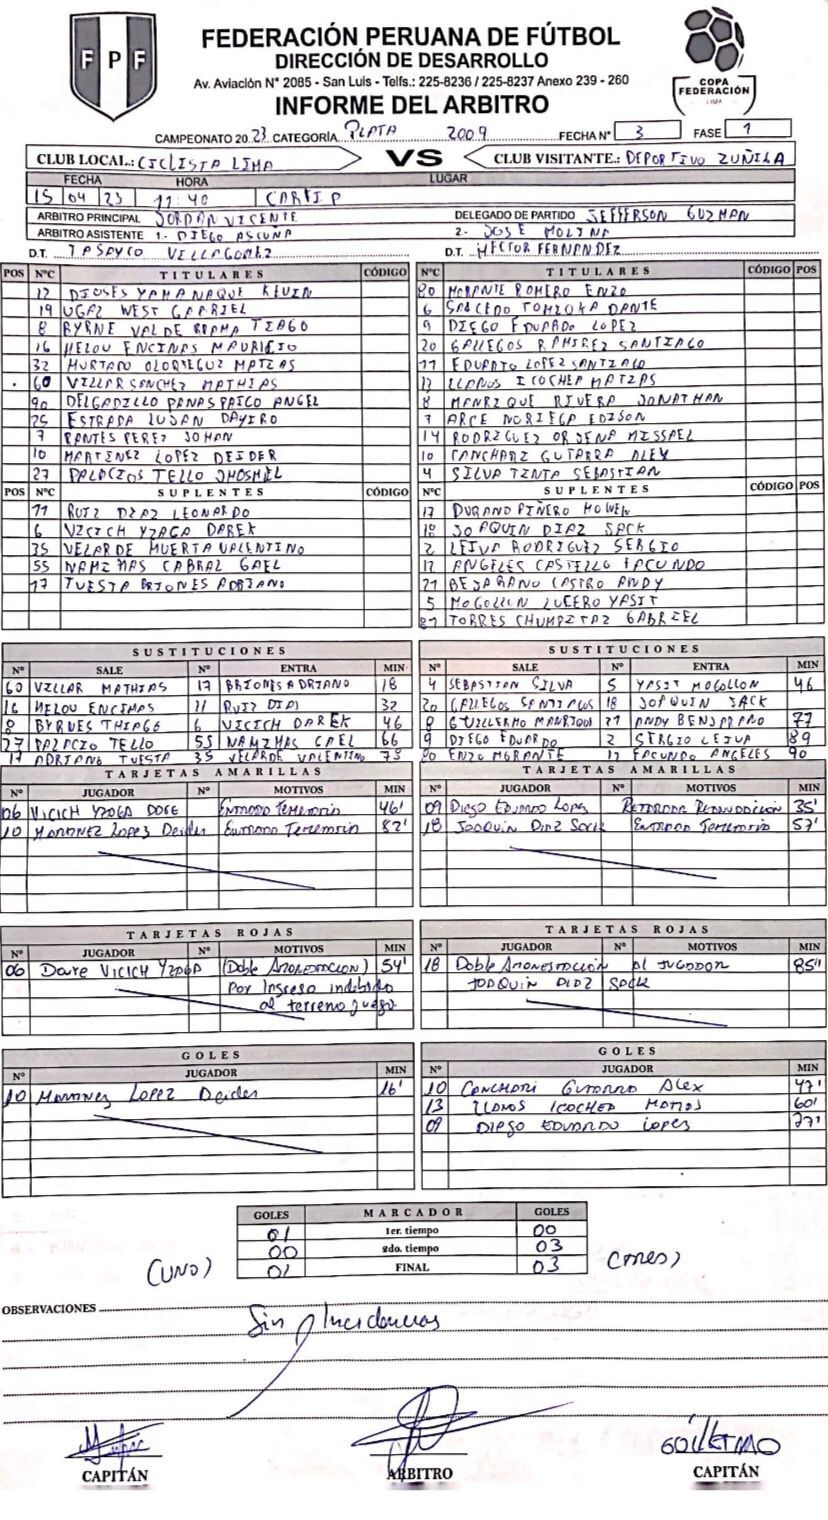 FPF
FEDERACIÓN PERUANA DE FÚTBOL
DIRECCIÓN DE DESARROLLO
Av. Aviación N° 2085 - San Luis - Telfs.: 225-8236 / 225-8237 Anexo 239 - 260
INFORME DEL ARBITRO
COPA
FEDERACIÓN
LIMA
CAMPEONATO 20 23 CATEGORÍA PLATA 2009 FECHA N° 3 FASE 1
CLUB LOCAL.: CICLISTA LIMA VS CLUB VISITANTE.: DEPORTIVO ZUÑIGA
FECHA HORA LUGAR
15 04 23 11:40
ARBITRO PRINCIPAL JORDAN VICENTE DELEGADO DE PARTIDO JEFFERSON GUZMAN
ARBITRO ASISTENTE 1.- DIEGO ASCUÑA 2.- JOSE MOLINA
D.T. TASAYCO VILLAGOMEZ D.T. HECTOR FERNANDEZ
POS N°C TITULARES CÓDIGO N°C TITULARES CÓDIGO POS
12 DIOSES YAMANAQUE KEVIN 80 MORANTE ROMERO ENZO
19 UGAZ WEST GABRIEL 6 SALCEDO TOMIOKA DANTE
8 BYRNE VALDERRAMA TIAGO 9 DIEGO EDUARDO LOPEZ
16 HELOU ENCINAS MAURICIO 20 GALLEGOS RAMIREZ SANTIAGO
32 HURTADO OLORTEGUI MATIAS 11 EDUARTO LOPEZ SANTIAGO
60 VILLAR SANCHEZ MATHIAS 13 LLANOS ICOCHEA MATIAS
90 DELGADILLO PANASPAICO ANGEL 8 MANRIQUE RIVERA JONATHAN
25 ESTRADA LUJAN DAYIRO 7 ARCE NORIEGA EDISON
7 PANTES PEREZ JOHAN 14 RODRIGUEZ ORJENA MISSAEL
10 MARTINEZ LOPEZ DEIDER 10 CANCHARI GUTARRA ALEX
27 PALACIOS TELLO JHOSMEL 4 SILVA TINTA SEBASTIAN
POS N°C SUPLENTES CÓDIGO N°C SUPLENTES CÓDIGO POS
11 RUIZ DIAZ LEONARDO 17 DURAND PIÑERO HOWEN
6 VICICH YZAGA DAREK 18 JOAQUIN DIAZ SACK
35 VELARDE HUERTA VALENTINO 2 LEIVA RODRIGUEZ SERGIO
55 NAMIHAS CABRAL GAEL 12 ANGELES CASTILLO FACUNDO
17 TUESTA BRIONES ADRIANO 21 BEJARANO CASTRO ANDY
5 MOGOLLON LUCERO YASIT
87 TORRES CHUMPITAZ GABRIEL
SUSTITUCIONES SUSTITUCIONES
N° SALE N° ENTRA MIN N° SALE N° ENTRA MIN
60 VILLAR MATHIAS 17 BRIONES ADRIANO 18 4 SEBASTIAN SILVA 5 YASIT MOGOLLON 46
16 HELOU ENCINAS 11 RUIZ DIAS 32 20 GALLEGOS SANTIAGOS 18 JOAQUIN SACK
8 BYRNES THIAGO 6 VICICH DAREK 46 8 GUILLERMO MANRIQUE 21 ANDY BENJARANO 77
27 PALACIO TELLO 55 NAMIHAS GAEL 66 9 DIEGO EDUARDO 2 SERGIO LEIVA 89
17 ADRIANO TUESTA 35 VELARDE VALENTINO 73 80 ENZO MORANTE 12 FACUNDO ANGELES 90
TARJETAS AMARILLAS TARJETAS AMARILLAS
N° JUGADOR N° MOTIVOS MIN N° JUGADOR N° MOTIVOS MIN
06 Vicich Yzaga Entrada Temeraria 46' 09 Diego Eduardo Lopes Retardar Reanudacion 35'
10 Martinez Lopez Deider Entrada Temeraria 82' 18 Joaquin Diaz Sack Entrada Temeraria 57'
TARJETAS ROJAS TARJETAS ROJAS
N° JUGADOR N° MOTIVOS MIN N° JUGADOR N° MOTIVOS MIN
06 Vicich Yzaga (Doble Amonestacion) 54' 18 Doble Amonestacion al Jugador 85"
Por Ingreso indebido Joaquin Diaz Sack
al terreno juego.
GOLES GOLES
N° JUGADOR MIN N° JUGADOR MIN
10 Martinez Lopez Deider 16' 10 Canchari Gutarra Alex 47'
13 Llanos Icochea Matias 60'
09 Diego Eduardo Lopes 77'
GOLES MARCADOR GOLES
01 1er. tiempo 00
00 2do. tiempo 03
(UNO) 01 FINAL 03 (TRES)
OBSERVACIONES Sin Incidencias
GUILLERMO
CAPITÁN ARBITRO CAPITÁN